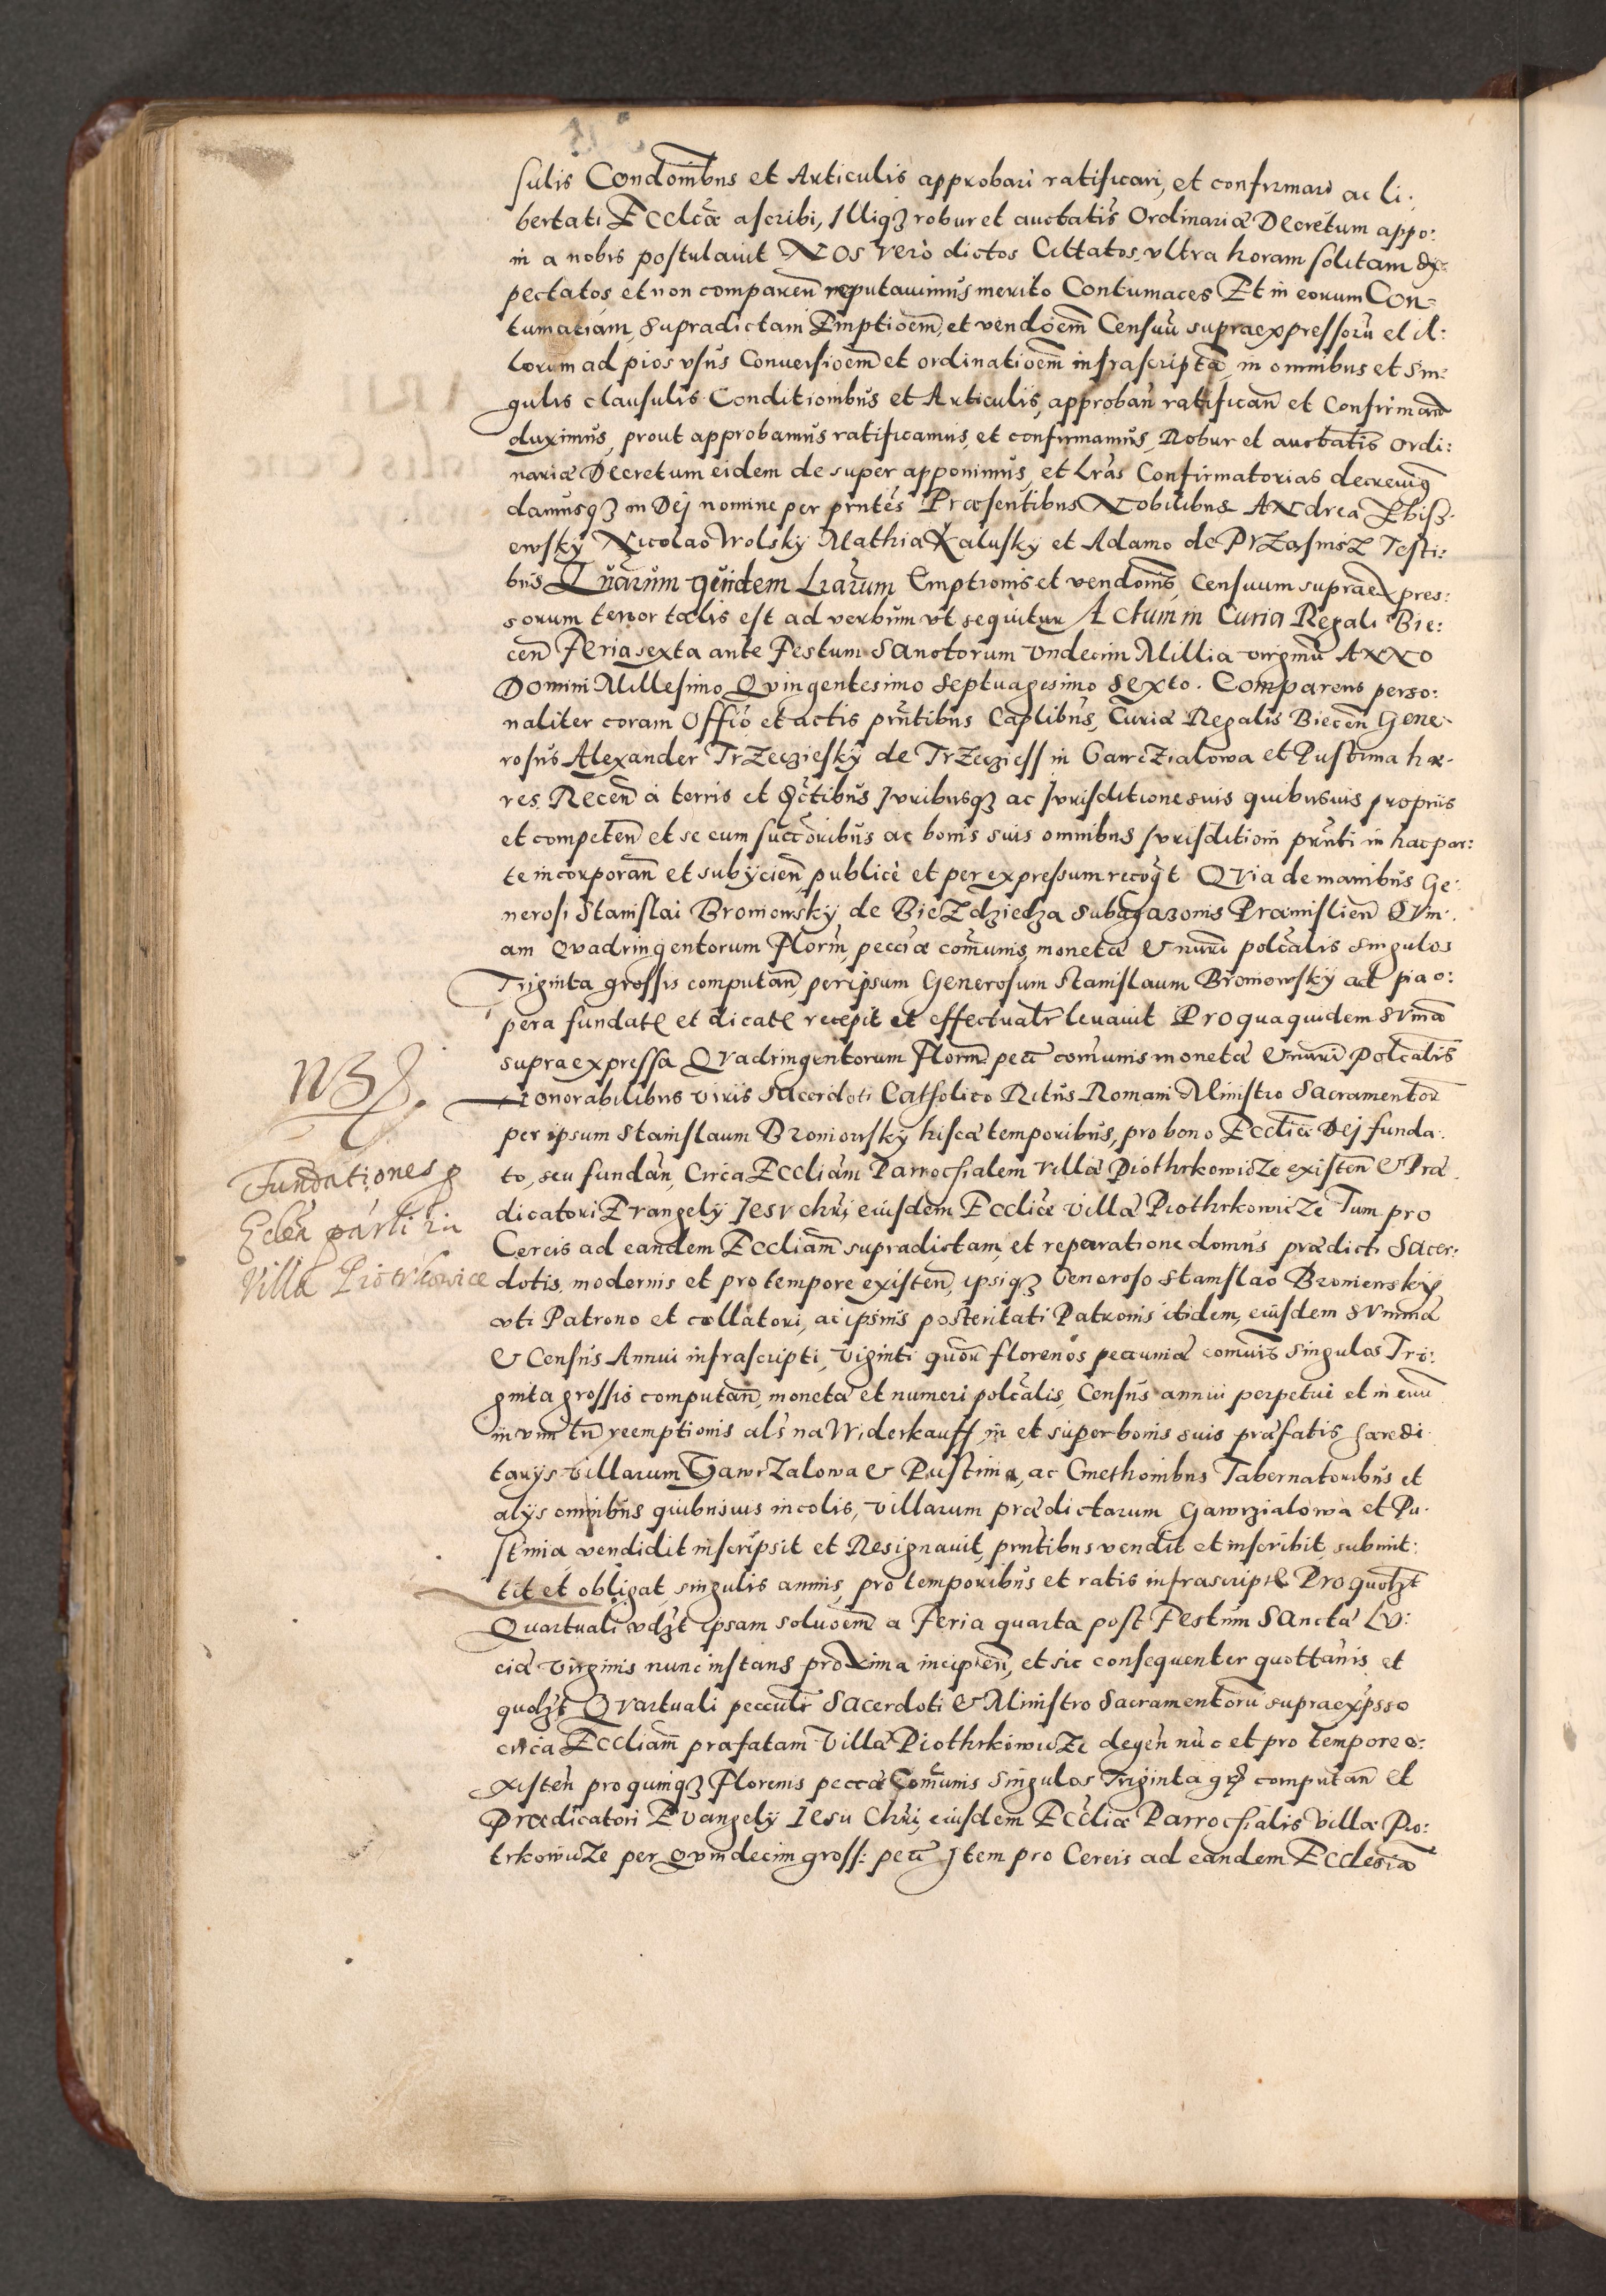 sulis Condoinibus et Articulis approbari ratificari, et confirmari ac li:
bertati Ecclcæ ascribi, Illiqz robur et auctatis Ordinariæ Decretum appo:
ni a nobis postulauit Nos vero dictos Cittatos vltra horam solitam ex:
pectatos et non comparen reputauimus merito Contumaces Et in eorum Con:
tumaciam, supradictam Emptioem, et vendoem Censuu supraexpressoru et il:
lorum ad pios vsus Conuersioem et ordinatioem infrascripta, in omnibus et sin:
gulis clausulis Conditionibus et Articulis, approban ratifican et Confirmand
duximus, prout approbamus ratificamus, et confirmamus, Robur et auctatis ordi:
nariæ Decretum eidem desuper apponimus, et Lras Confirmatorias decreuimus
damusqz in Dej nomine per pntes Præsentibus Nobilibus Andrea
ewsky Nicolao Wolsky Mathia Kalusky et Adamo de Przasnisz Testi:
bus Quarum quidem Lrarum Emptionis et vendonis, Censuum supraexpres:
sorum tenor talis est ad verbum vt sequitur Actum in Curia Regali Bie:
cen Feria sexta ante Festum Sanctorum vndecim Millia virginu Anno
Domini Millesimo Qvingentesimo Septuagesimo Sexto. Comparens perso:
naliter coram Offio et actis pntibus Caplibus, Curiæ Regalis Biecen Gene:
rosus Alexander Trzecziesky de Trzeciess in Gawrzialowa et Pustima hæ:
res Receden a terris et Iuribusqz ac Jurisditione suis quibusuis proprijs
et competen et se cum succoribus ac bonis suis omnibus Jurisditioni pnti in hac par:
te incorporan et subijcien, publice et per expressum recogt Qvia de manibus Ge:
nerosi Stanislai Bromowsky de Biezdziedza Subagazonis Præmislien Sum:
am Qvadringentorum Floren, peccæ comunis, monetæ & numeri polcalis singulos
Triginta grossis computan, per ipsum Generosum Stanislaum Bromowsky ad pia o:
pera fundate et dicate recepit et effectualr leuauit Pro qua quidem summa
supraexpressa Qvadringentorum Floren pecc comunis monetæ & numeri polcalis
Honorabilibus viris Sacerdoti Catholico Ritus Romani Ministro Sacramentoru
per ipsum Stanislaum Bromowsky hisce temporibus, pro bono Eccliæ Dej funda:
to, seu fundan, Circa Eccliam Parrochialem villæ Piothrkowicze existen & Præ:
dicatori Evangely Jesv chri, eiusdem Eccliæ villæ Piothrkowicze Tum pro
Cereis ad eandem Eccliam supradictam, et reparatione domus prædicti Sacer:
dotis, modernis et pro tempore existen, ipsiqz Generoso Stanislao Bromowsky
vti Patrono et collatori, ac ipsius posteritati Patronis itidem, eiusdem summæ
& Census Annui infrascripti, viginti quor florenos peccuniæ comunis singulos Tri:
ginta grossis computan, monetæ et numeri polcalis, Census annui perpetui et in euu
in vim tn reemptionis als na Widerkauff, in et super bonis suis præfatis hæredi:
tarijs villarum Gawrzalowa & Pustima, ac Cmethonibus Tabernatoribus et
alijs omnibus quibusuis incolis, villarum prædictarum Gawrzialowa et Pu:
stmia vendidit inscripsit et Resignauit, pntibus vendit et inscribit, submit:
tit et obligat, singulis annis, pro temporibus et ratis infrascripte Pro quotzt
Quartuali vdzt ipsam soluoem a Feria quarta post Festum Sanctæ Lv:
ciæ virginis nunc instans proxima incipien, et sic consequenter quottanis et
quotzt Qvartuali peccular Sacerdoti & Ministro Sacramentoru supraexpsso
circa Eccliam præfatam villæ Piothrkowicze degen nuc et pro tempore e:
xisten pro quinqz Florenis peccæ Comunis singulos Triginta gr computan et
Prædicatori Evangely Iesu Chri, eiusdem Eccliæ Parrochialis villæ Pio:
trkowicze per Qvindecim gross: pecc Item pro Cereis ad eandem Ecclesia
NB
Fundationes p
Eclea parli in
Villa Piotrkowice